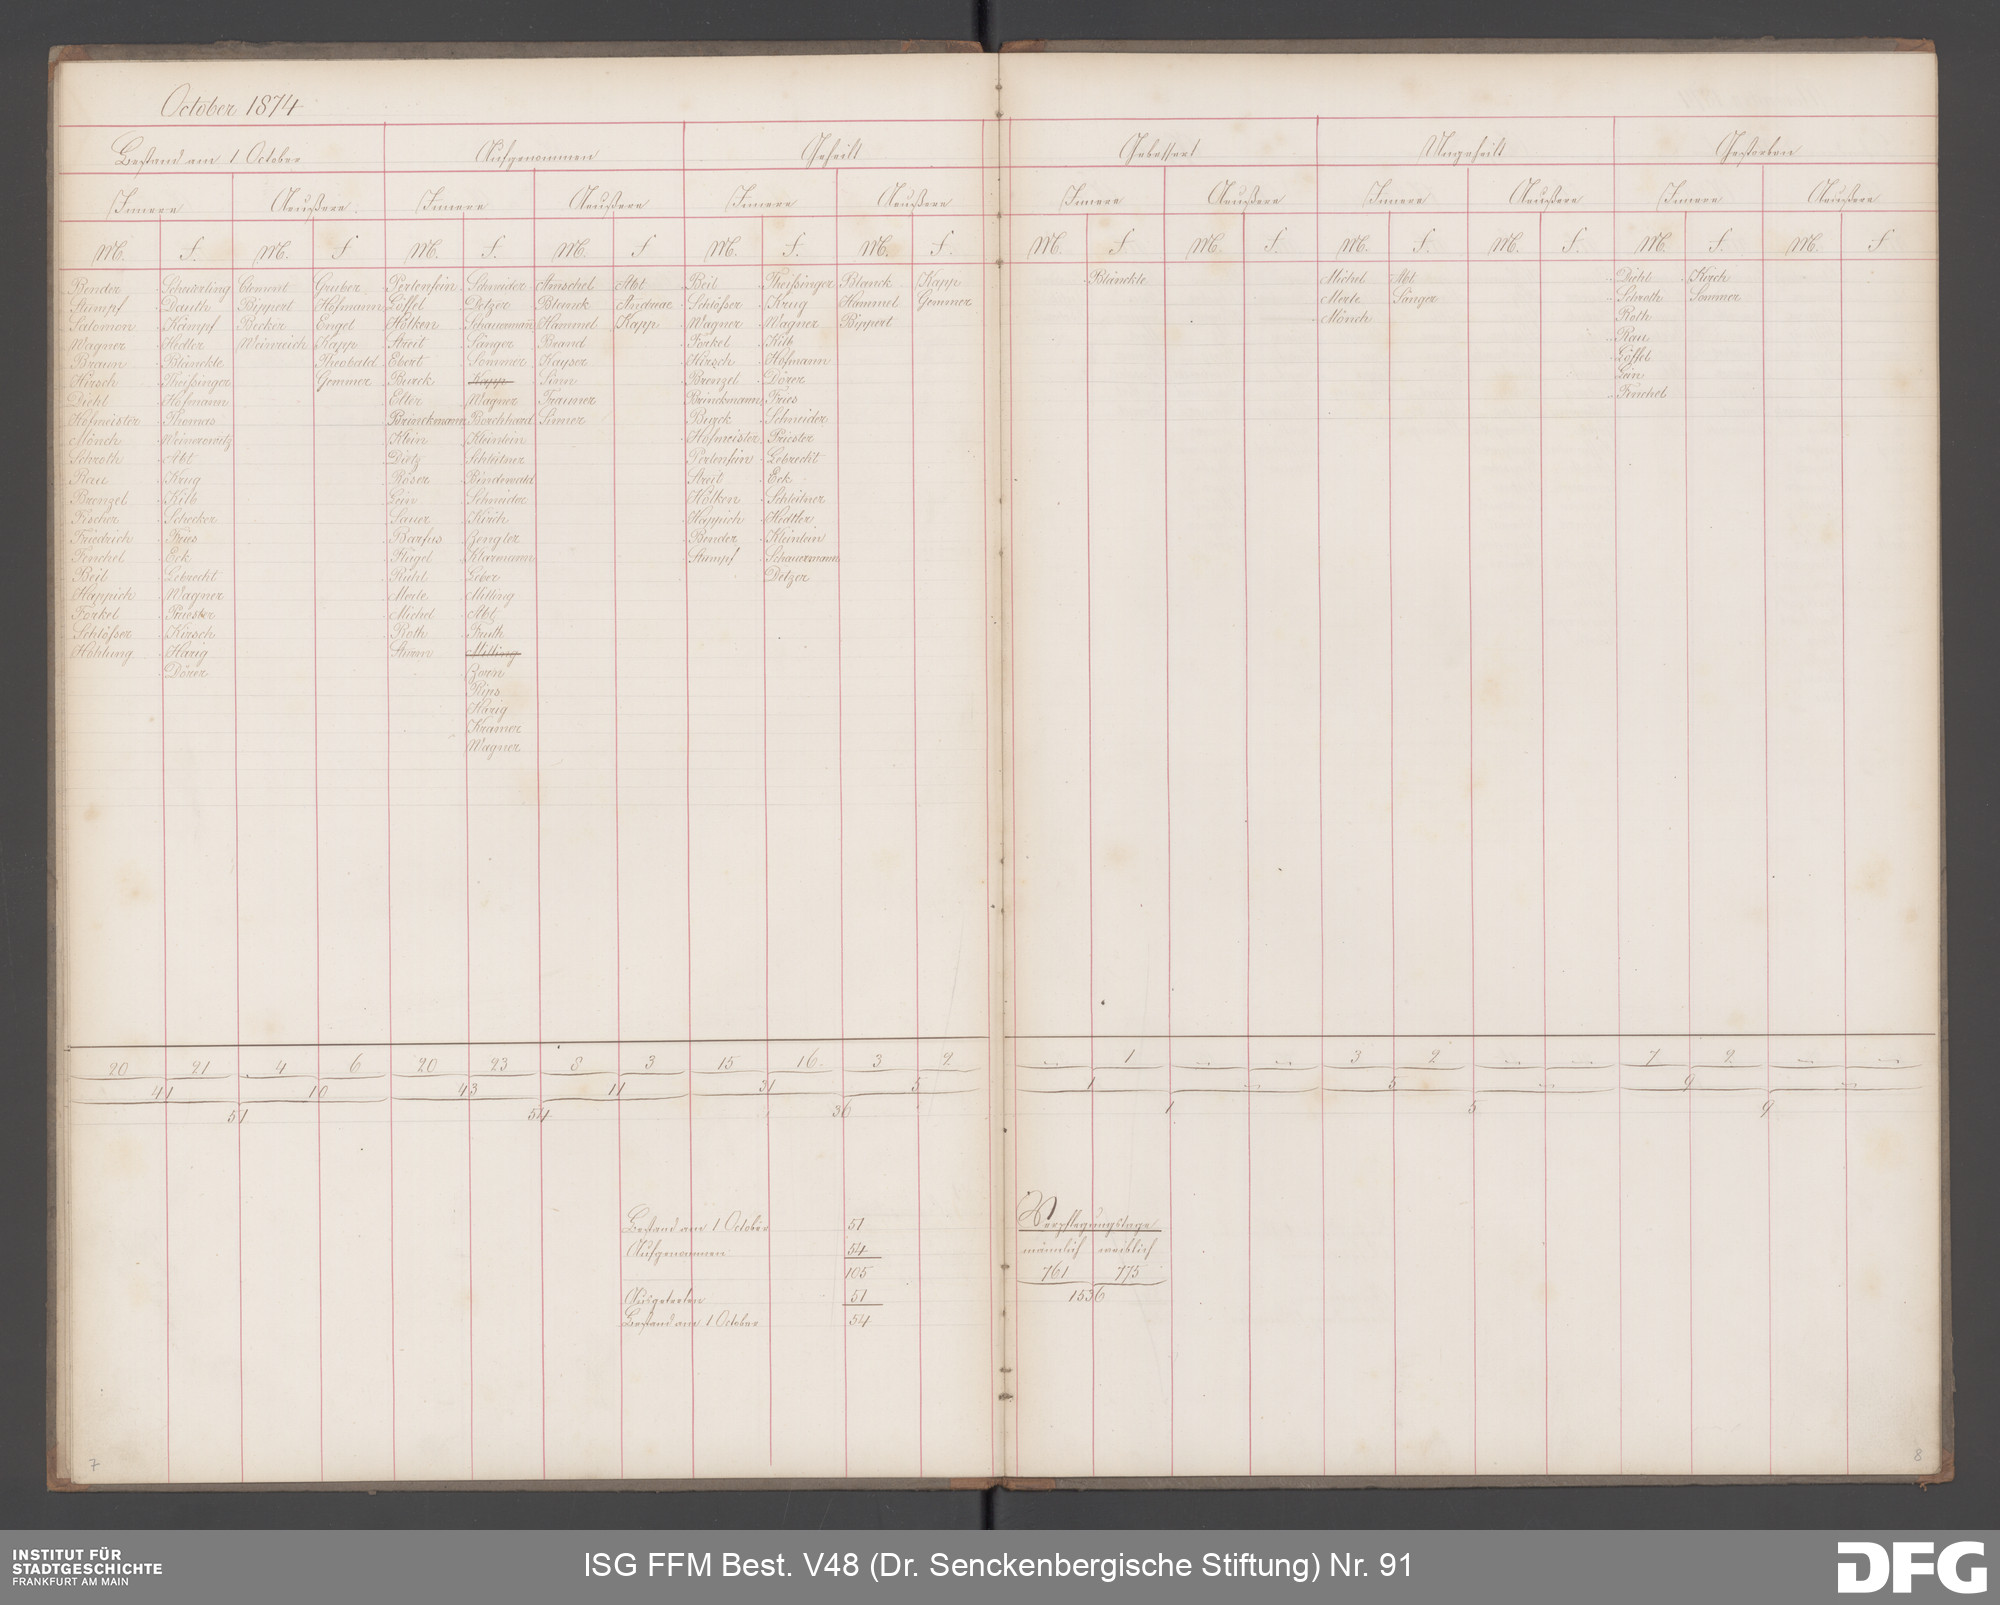 October 1874
Bestand am 1 October Aufgenommen Geheilt Gebessert Ungeheilt Gestorben
Innere Aeußere Innere Aeußere Innere Aeußere Innere Aeußere Innere Aeußere Innere Aeußere
M. F. M. F M. F. M. F M. F. M. F. M. F. M. F. M. F. M. F. M. F. M. F
Bender Schwertling Clement Gruber Pertensin Schneider Amschel Abt Beil Theißinger Blanck Kapp Blänckle Michel Abt Diehl Kirch
Stumpf Dauth Bippert Hofmann Löffel Detzer Blank Andreae Schlösser Krug Hammel Gemmer Merle Sänger Schroth Sommer
Salomon Kämpf Becker Engel Hölken Schauermann Hammel Kapp Wagner Wagner Bippert Mönch Roth
Wagner Hedler Weinreich Kapp Streit Sänger Brand Forkel Kilb Rau
Braun Blänckle Theobald Ebert Sommer Kayser Hirsch Hofmann Löffel
Hirsch Theißinger Gemmer Burck Kapp Sinn Brenzel Dörer Lein
Diehl Hofmann Etter Wagner Trauner Brinckmann Fries Fenchel
Hofmeister Thomas Brinckmann Borchhard Sinner Burck Schneider
Mönch Weinerowitz Klein Kleinlein Hofmeister Priester
Schroth Abt Dietz Schleitner Pertensin Lebrecht
Rau Krug Röser Bindewald Streit Eck
Brenzel Kilb Lein Schneider Hölken Schleitner
Fischer Schecker Sauer Kirch Happich Hedtler
Friedrich Fries Barfus Zengler Bender Kleinlein
Fenchel Eck Flügel Klarmann Stumpf Schauermann
Beil Lebrecht Rühl Leber Detzer
Happich Wagner Merle Milling
Forkel Priester Michel Abt
Schlösser Kirsch Roth Fruth
Hohlung Harig Sturm Milling
Dörer Zorn
Rips
Harig
Kramer
Wagner
20 21 4 6 20 23 8 3 15 16. 3 2 – 1 – – 3 2 – – 7 2 – –
41 10 43 11 31 5 1 – 5 – 9 –
51 54 36 1 5 9
Bestand am 1 October 51
Aufgenommen 54
105
Ausgetreten 51
Bestand am 1 October 54
Verpflegungstage
männlich weiblich
761 775
1536
7
8
INSTITUT FÜR
STADTGESCHICHTE
FRANKFURT AM MAIN
ISG FFM Best. V48 (Dr. Senckenbergische Stiftung) Nr. 91
DFG